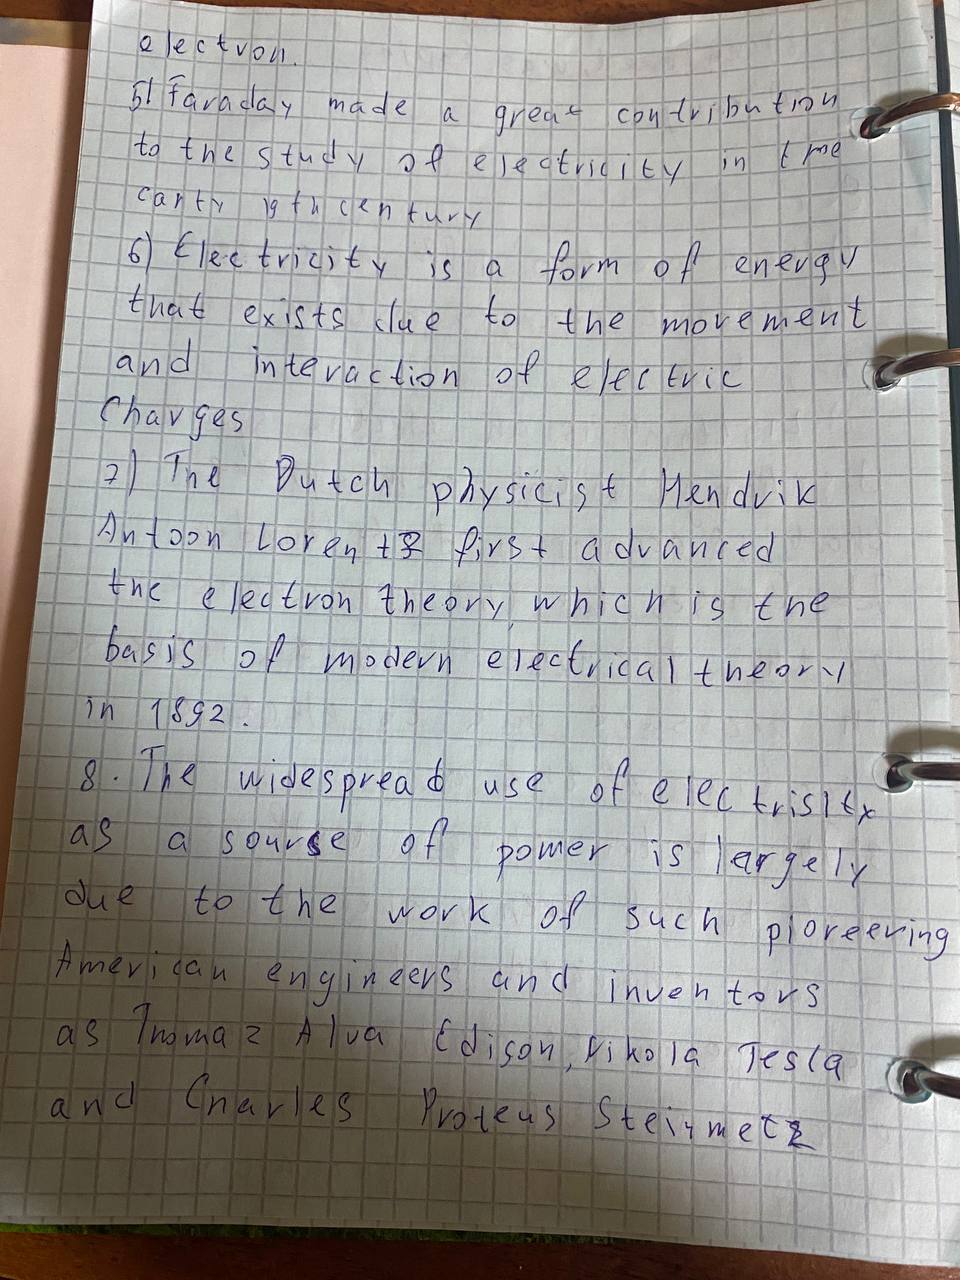 electron.
5) Faraday made a great contribution
to the study of electricity in the
early 19th century
6) Electricity is a form of energy
that exists due to the movement
and interaction of electric
Charges
7) The Dutch physicist Hendrik
Antoon Lorentz first advanced
the electron theory, which is the
basis of modern electrical theory
in 1892.
8. The widespread use of electrisity
as a sourse of power is largely
due to the work of such pioreering
American engineers and inventors
as Thomaz Alva Edison, Nikola Tesla
and Charles Proteus Steinmetz